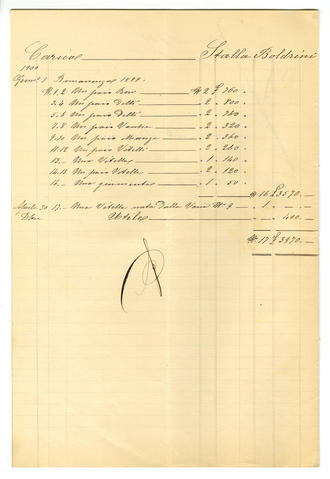 Carico Stalla Boldrini
1900
Genn. 1 Rimanenza 1899.
N. 1.2 Un paio Bovi N. 2 £ 760
3.4 Un paio Detti " 2 " 800
5.6 Un paio Detti " 2 " 760
7.8 Un paio Vacche " 2 " 320
9.10 Un paio Manze " 2 " 360
11.12 Un paio Vitelli " 2 " 260
13.- Una Vitella " 1 " 140
14.15 Un paio Vitelle " 2 " 120
16.- Una giumenta " 1 " 50
N. 16 £ 3570
30 17.- Una Vitella nata Dalla Vacca N. 9 - " 1 " -
Utile - " 400 -
N. 17 £ 3970